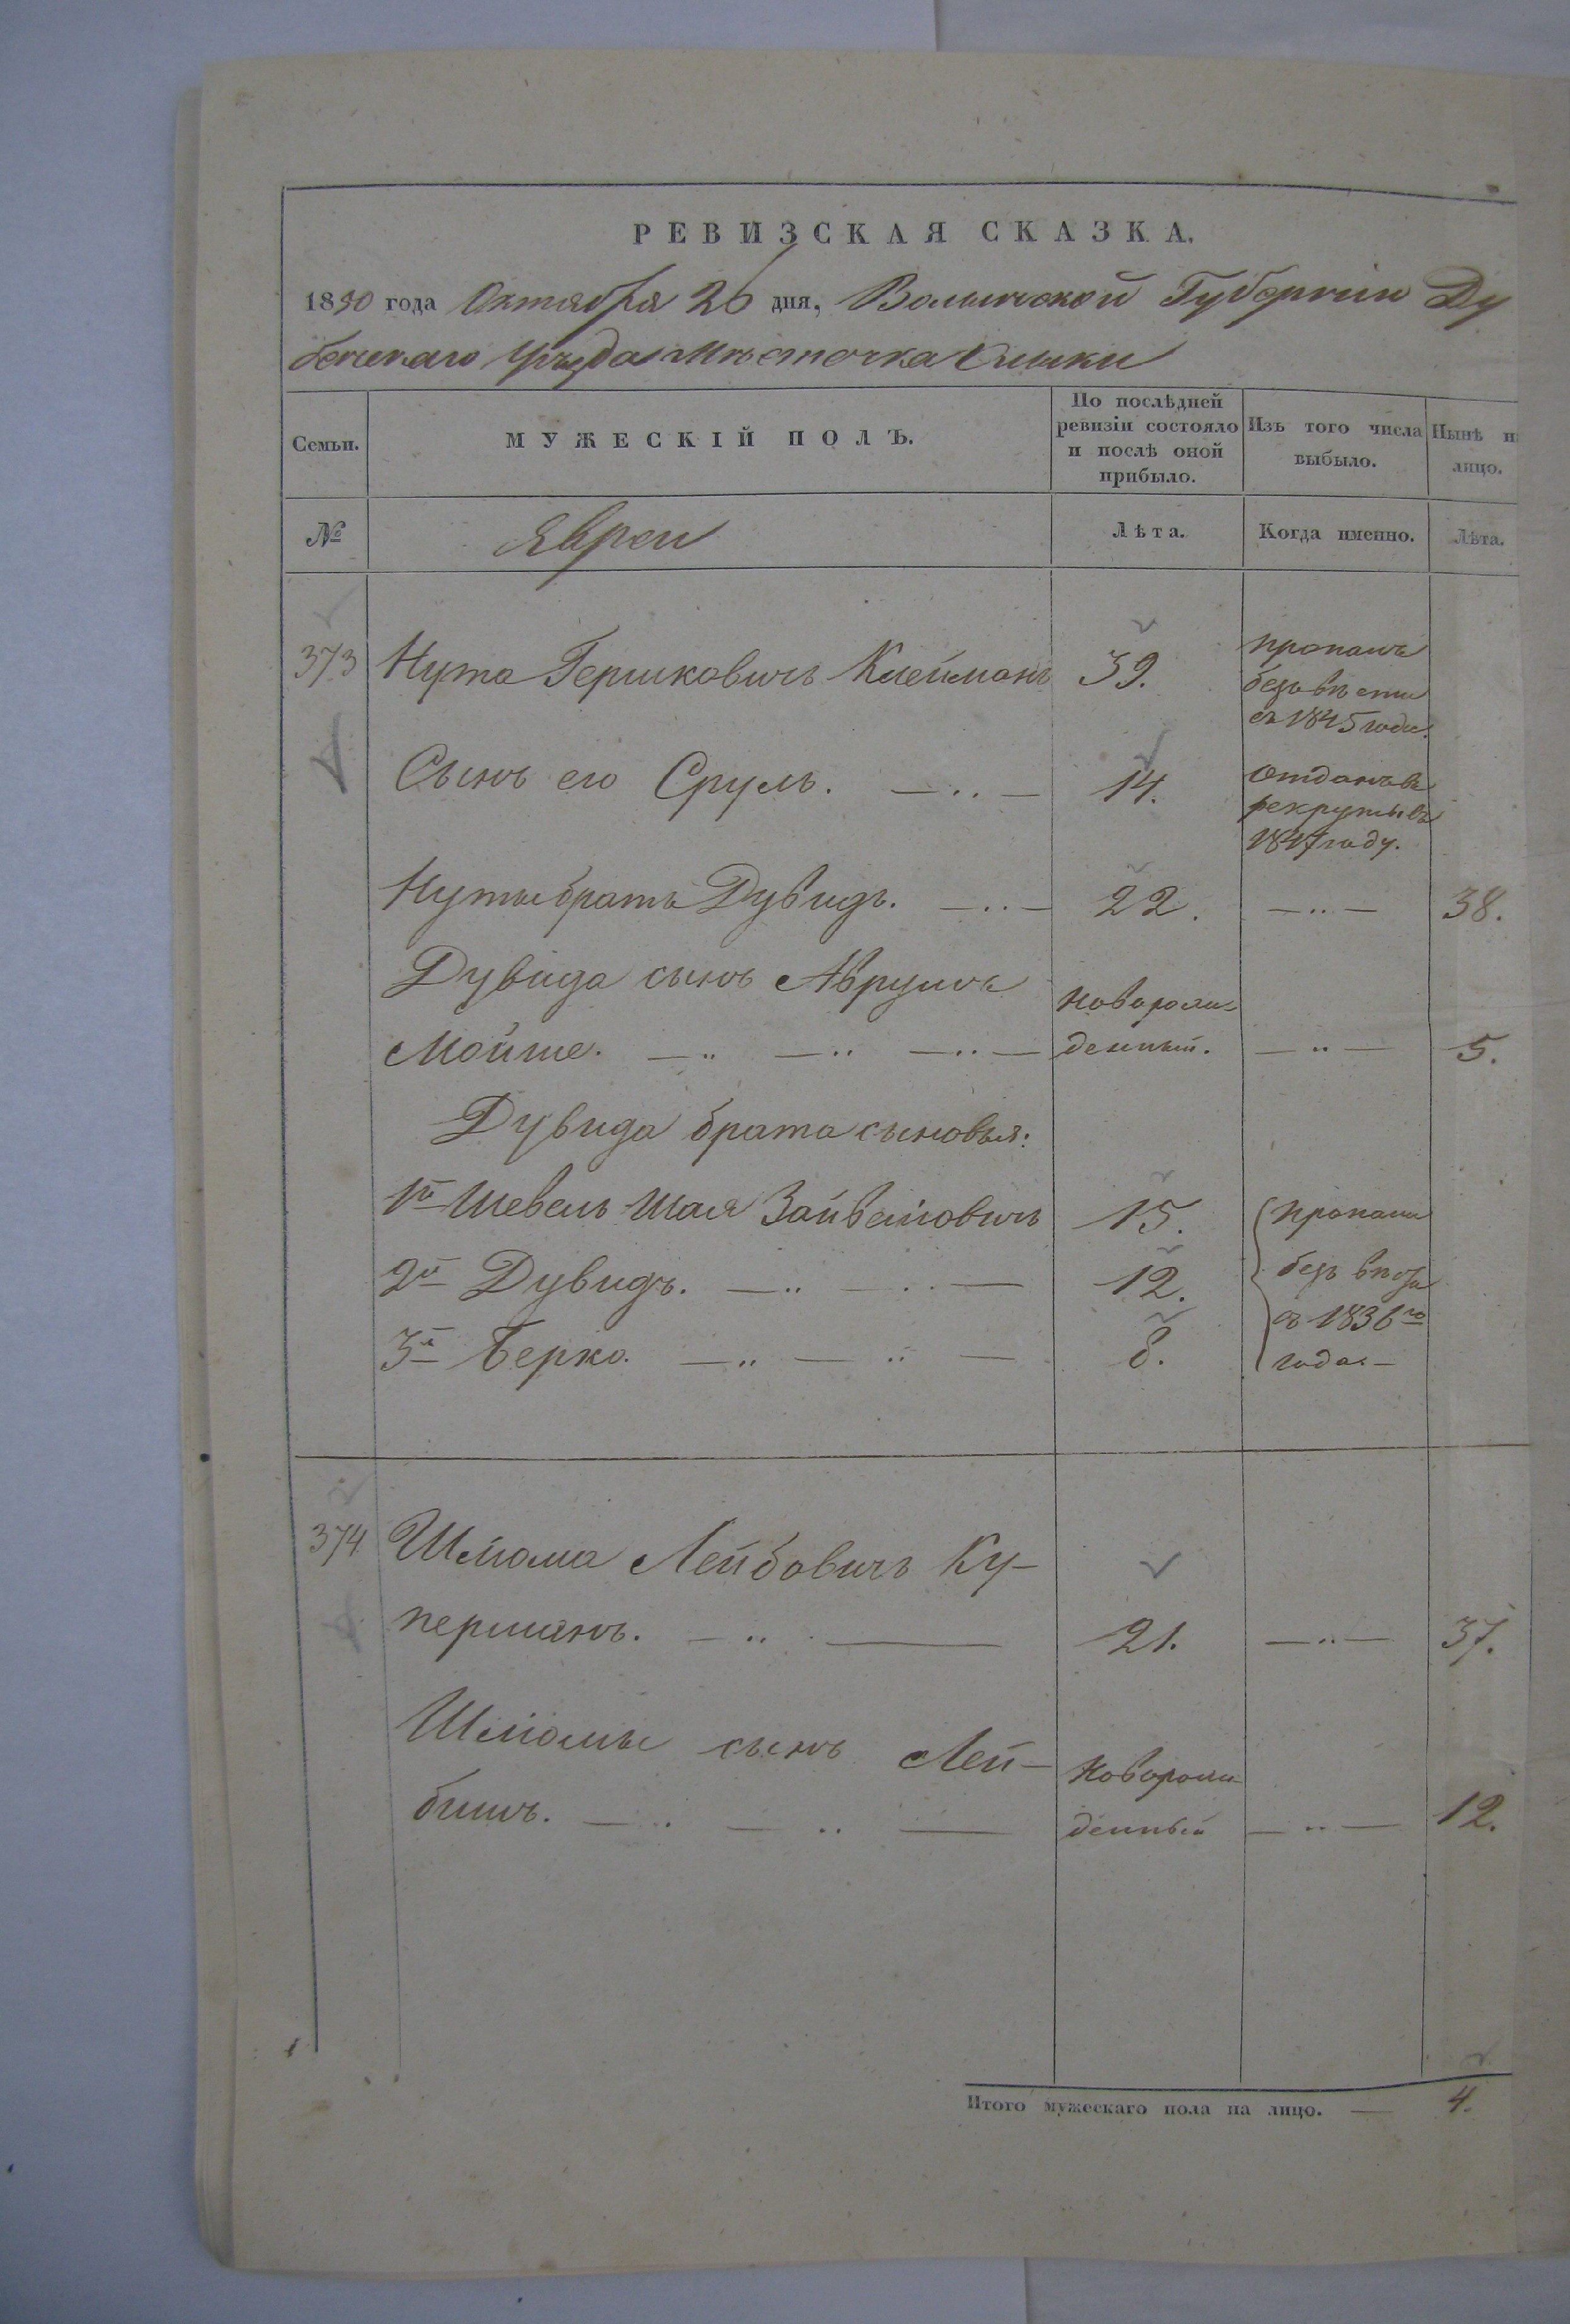 РЕВИЗСКАЯ СКАЗКА.
1850 года Октября 26 дня, Волынской Губернии Ду
бенскаго Уезда Мѣстечка Олыки
Семьи.
МУЖЕСКІЙ ПОЛЪ.
По послѣдней
ревизіи состояло
и послѣ оной
прибыло.
Изъ того числа
выбыло.
Нынѣ н
лицо.
№
Евреи
Лѣта.
Когда именно.
Лѣта.
373 Нута Гершковичъ Клейманъ 39.
пропалъ
безъ вѣсти
съ 1845 года.
Сынъ его Сруль. 14.
отданъ въ
рекруты въ
1847 году.
Нуты братъ Дувидъ. 22. 38.
Дувида сынъ Аврумъ
Мойше.
новорож-
денный.
5.
Дувида брата сыновья:
1й Шевель Шая Зайвеловичъ 15.
2й Дувидъ. 12.
3й Берко. 8.
пропали
безъ
съ 1836го
года.
374 Шліома Лейбовичъ Ку-
перманъ. 21. 37.
Шліомы сынъ Лей-
бишъ.
Новорож-
денный
12.
Итого мужескаго пола на лицо. 4.